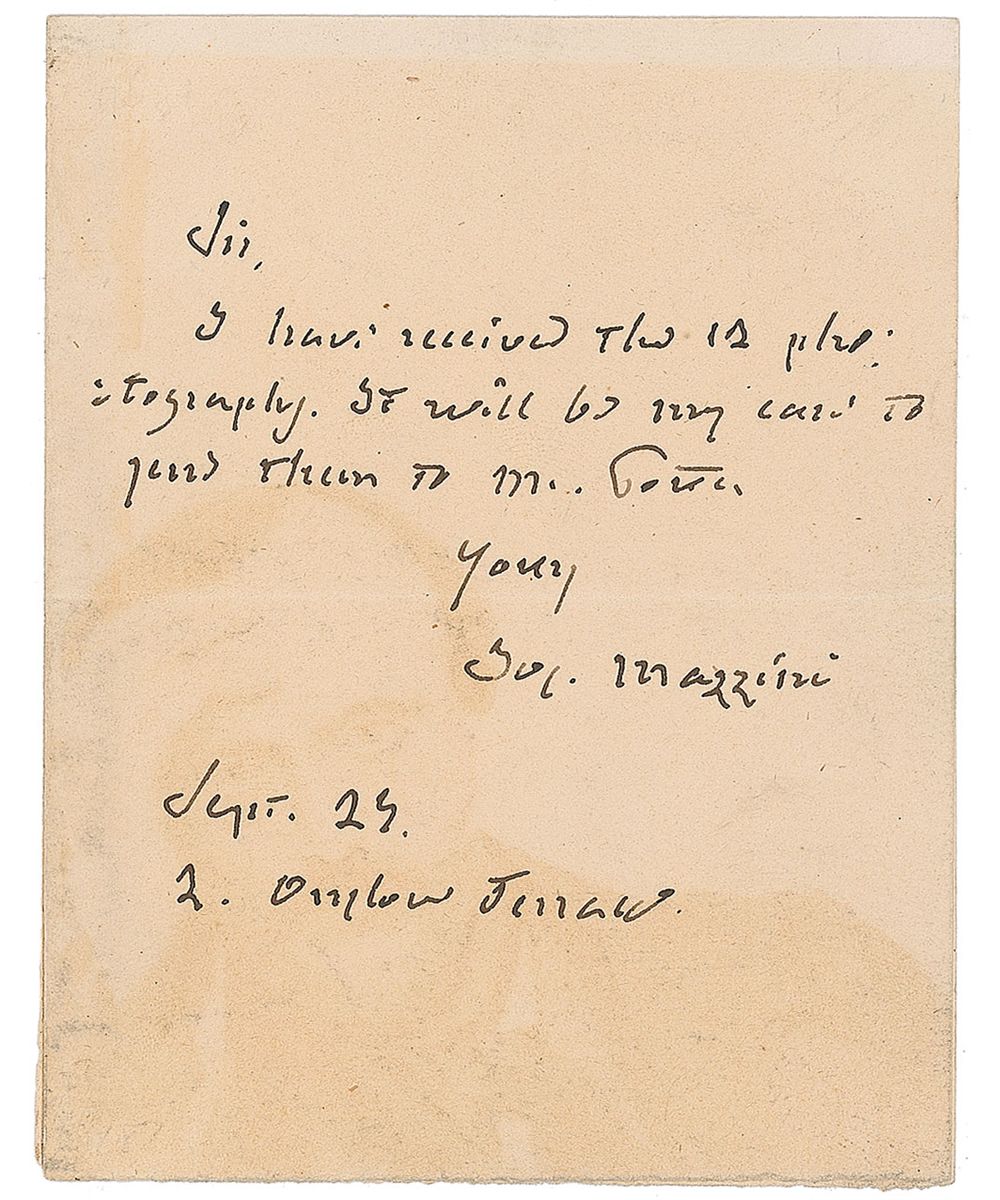 Sir,
I have received the 12 pho:
:tographs. It will be my care to
send them to Mr.
Yours
Jos. Mazzini
Sept. 24.
2. Onslow Terrace.